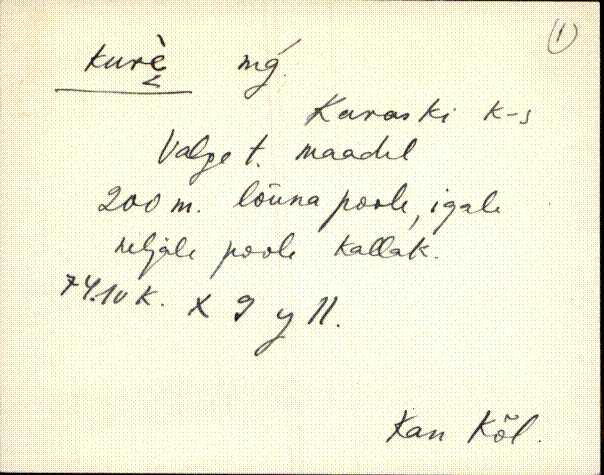 ①
kurè̬ mǵ.
Karaski k-s
Valge t. maadel
200 m. lõuna poole, igale
neljale poole kallak.
74.10 K. X 9 y 11.
Kan Kõl.